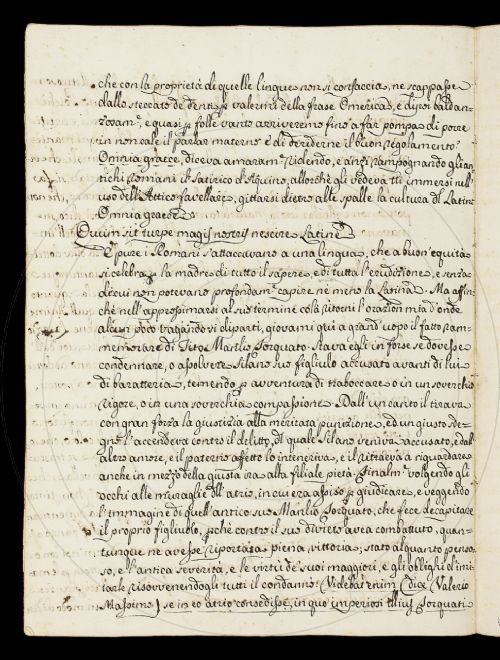 che con la proprietà di quelle lingue non si confaccia, ne scappasse
dallo steccato de' denti, p valermi della frase Omerica, e di poi baldan-
zosam.e, e quasi p folle vanto arriveremo fino a far pompa di porre
in non cale il parlar materno e di deriderne il buon regolamento?
Omnia graece, diceva amaram.e ridendo, e anzi rampognando gli an-
tichi Romani il Satirico d'Aquino, allorchè gli vedeva tti immersi nell'
uso dell'Attico favellare, gittarsi dietro alle spalle la cultura del Latino
Omnia graece
Quum sit turpe magis nostris nescire Latine
E pure i Romani s'attaccavano a una lingua, che a buon'equità
si celebra p la madre di tutto il sapere, e di tutta l'erudizione, e senza
di cui non potevano profondam.e capire ne meno la Latina. Ma affin-
chè nell'approssimarsi al suo termine colà ritorni l'orazion mia d'onde
alcun poco vagando si dipartì, giovami qui a grand'uopo il fatto ram-
memorare di Tito Manlio Torquato. Stava egli in forse se dovesse
condennare, o assolvere Silano suo figliuolo accusato avanti di lui
di baratteria, temendo p avventura di traboccare o in un soverchio
rigore, o in una soverchia compassione. Dall'un canto il tirava
con gran forza la giustizia alla meritata punizione, ed un giusto sde-
gno l'accendeva contro il delitto, del quale Silano veniva accusato, dall'
altro amore, e il paterno affetto lo inteneriva, e il ritraeva a riguardare
anche in mezzo della giusta ira alla filiale pietà. Finalm.e volgendo gli
occhi alle muraglie dell'atrio, in cui era assiso p giudicare, e veggendo
l'immagine di quell'antico suo Manlio Torquato, che fece decapitare
il proprio figliuolo, pchè contro il suo divieto avea combattuto, quan-
tunque ne avesse riportata piena vittoria; stato alquanto penso-
so, e l'antica severità, e le virtù de' suoi maggiori, e gli obblighi d'imi-
tarle risovvenendogli tutti il condannò: (Videbat enim (dice Valerio
Massimo) se in eo atrio consedisse, in quo imperiosi illius Torquati